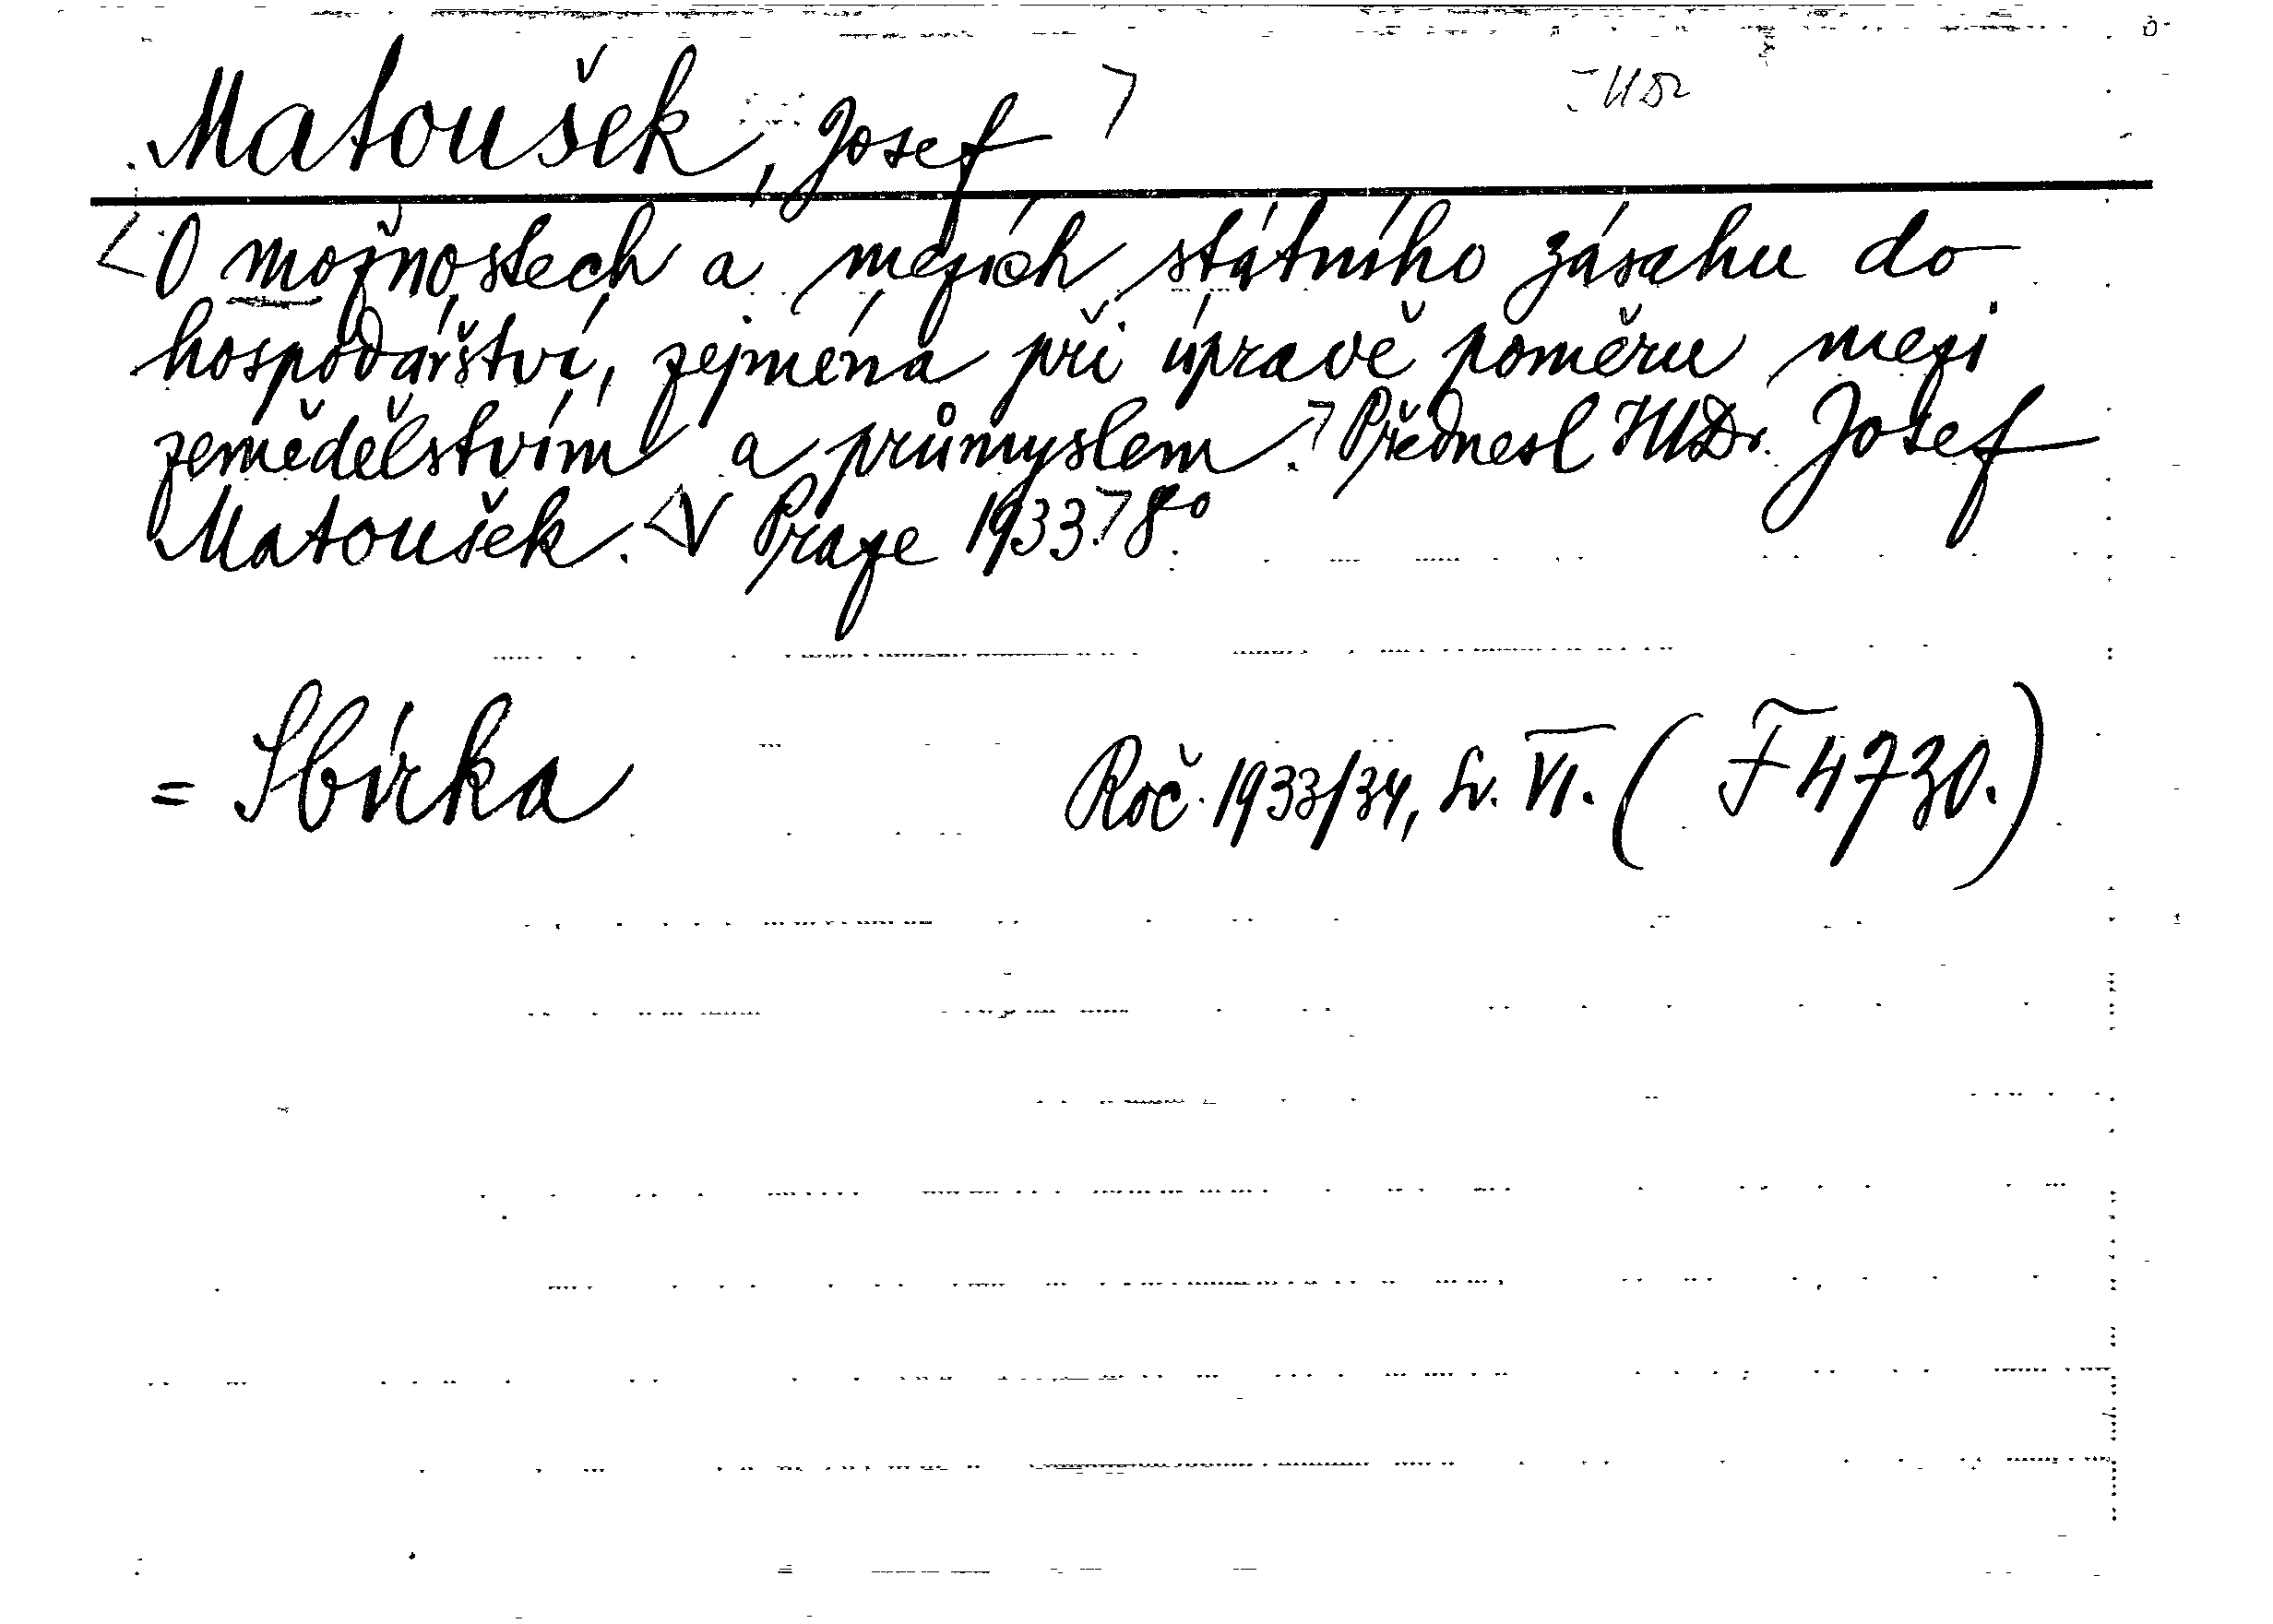 Matoušek, Josef
O možnostech a mezích státního zásahu do
hospodářství, zejména při úpravě poměru mezi
zemědělstvím a průmyslem. Přednesl JUDr. Josef
Matoušek. V Praze 1933. 8°.
= Sbírka Roč. 1933/34, Sv. VI. (F 4730.)